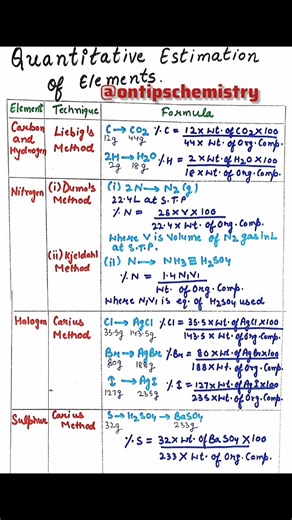 Quantitative Estimation
of Elements.
@ontipschemistry
Element Technique Formula
Carbon and Hydrogen
Liebig's Method
C → CO2 % C = 12 × Wt. of CO2 × 100
12g 44g 44 × Wt. of Org. Comp.
2H → H2O % H = 2 × Wt. of H2O × 100
2g 18g 18 × Wt. of Org. Comp.
Nitrogen
(i) Duma's Method
(i) 2N → N2 (g)
22.4L at S.T.P
% N = 28 × V × 100
22.4 × Wt. of Org. Comp.
Where V is Volume of N2 gas in L
at S.T.P.
(ii) Kjeldahl Method
(ii) N → NH3 ≡ H2SO4
% N = 1.4 N1V1
Wt. of Org. Comp.
Where N1V1 is eq. of H2SO4 used
Halogen
Carius Method
Cl → AgCl % Cl = 35.5 × wt. of AgCl × 100
35.5g 143.5g 143.5 × wt. of Org. Comp.
Br → AgBr % Br = 80 × wt. of AgBr × 100
80g 188g 188 × wt. of Org. Comp.
I → AgI % I = 127 × wt. of AgI × 100
127g 235g 235 × wt. of Org. Comp.
Sulphur
Carius Method
S → H2SO4 → BaSO4
32g 233g
% S = 32 × wt. of BaSO4 × 100
233 × wt. of Org. Comp.